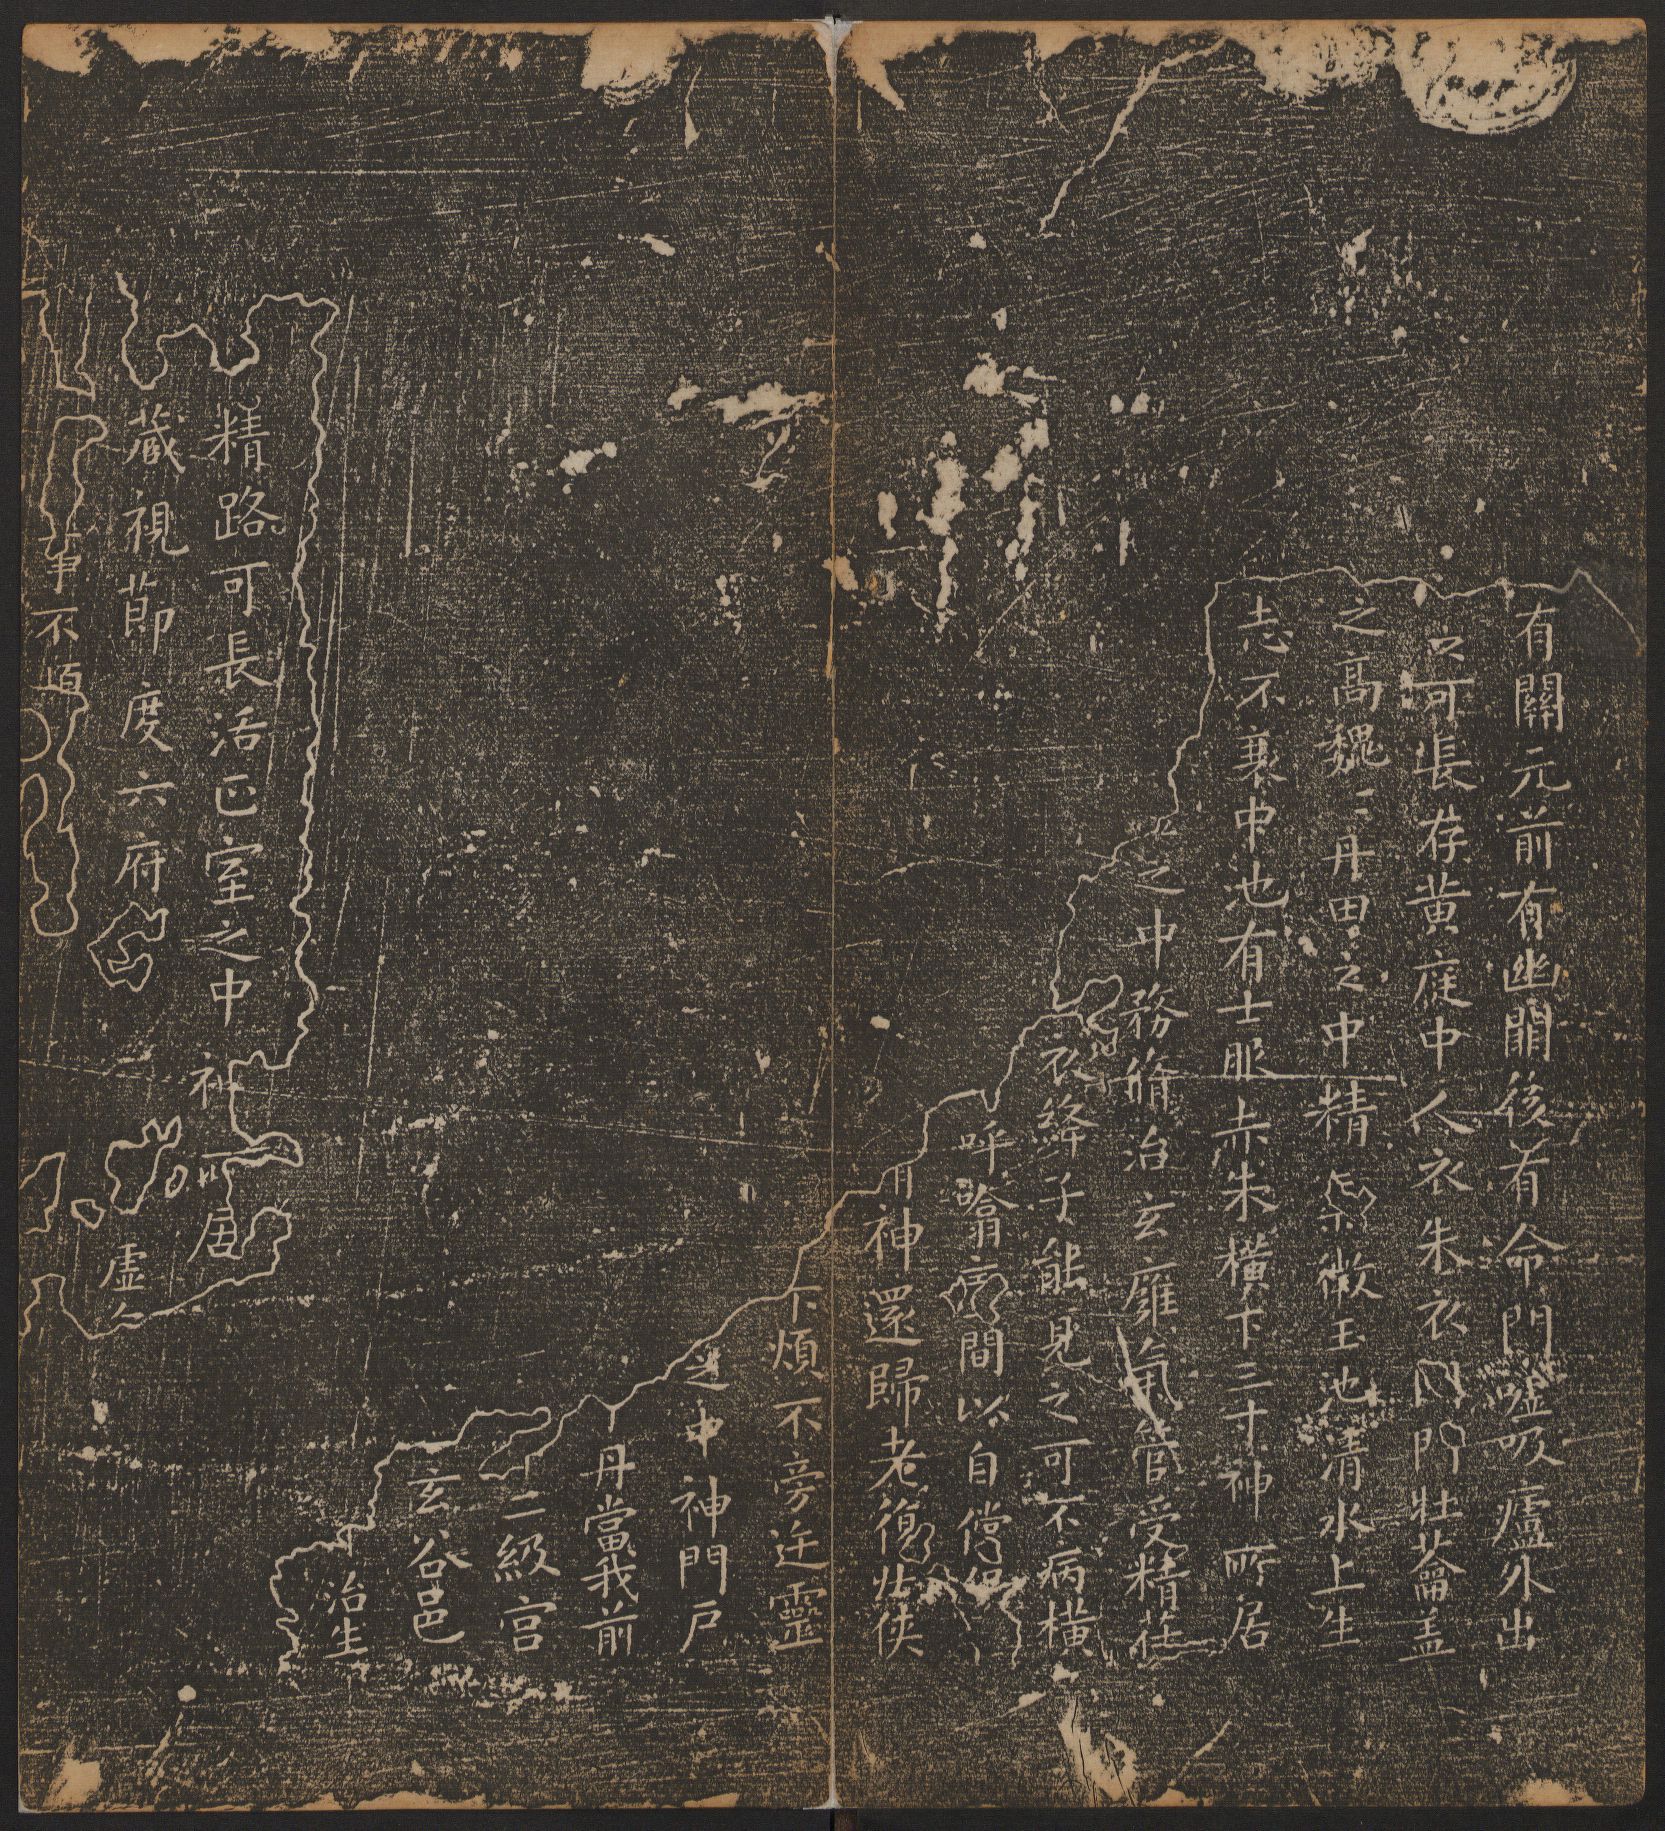 有關元前有幽闕後有命門噓吸廬外出
可長存黄庭中人衣朱衣門牡蘥盖
之高魏=丹田之中精氣微玉池清水上生
志不衰中池有士服赤朱橫下三寸神所居
之中務脩治玄廱氣管受精苻
衣絳子能見之可不病橫
呼噏間以自償
神還歸老復壯俠
下煩不旁迕靈
道中神門戸
丹當我前
二級宫
玄谷邑
治生
精路可長活正室之中神所居
藏視節度六府
虛
事不